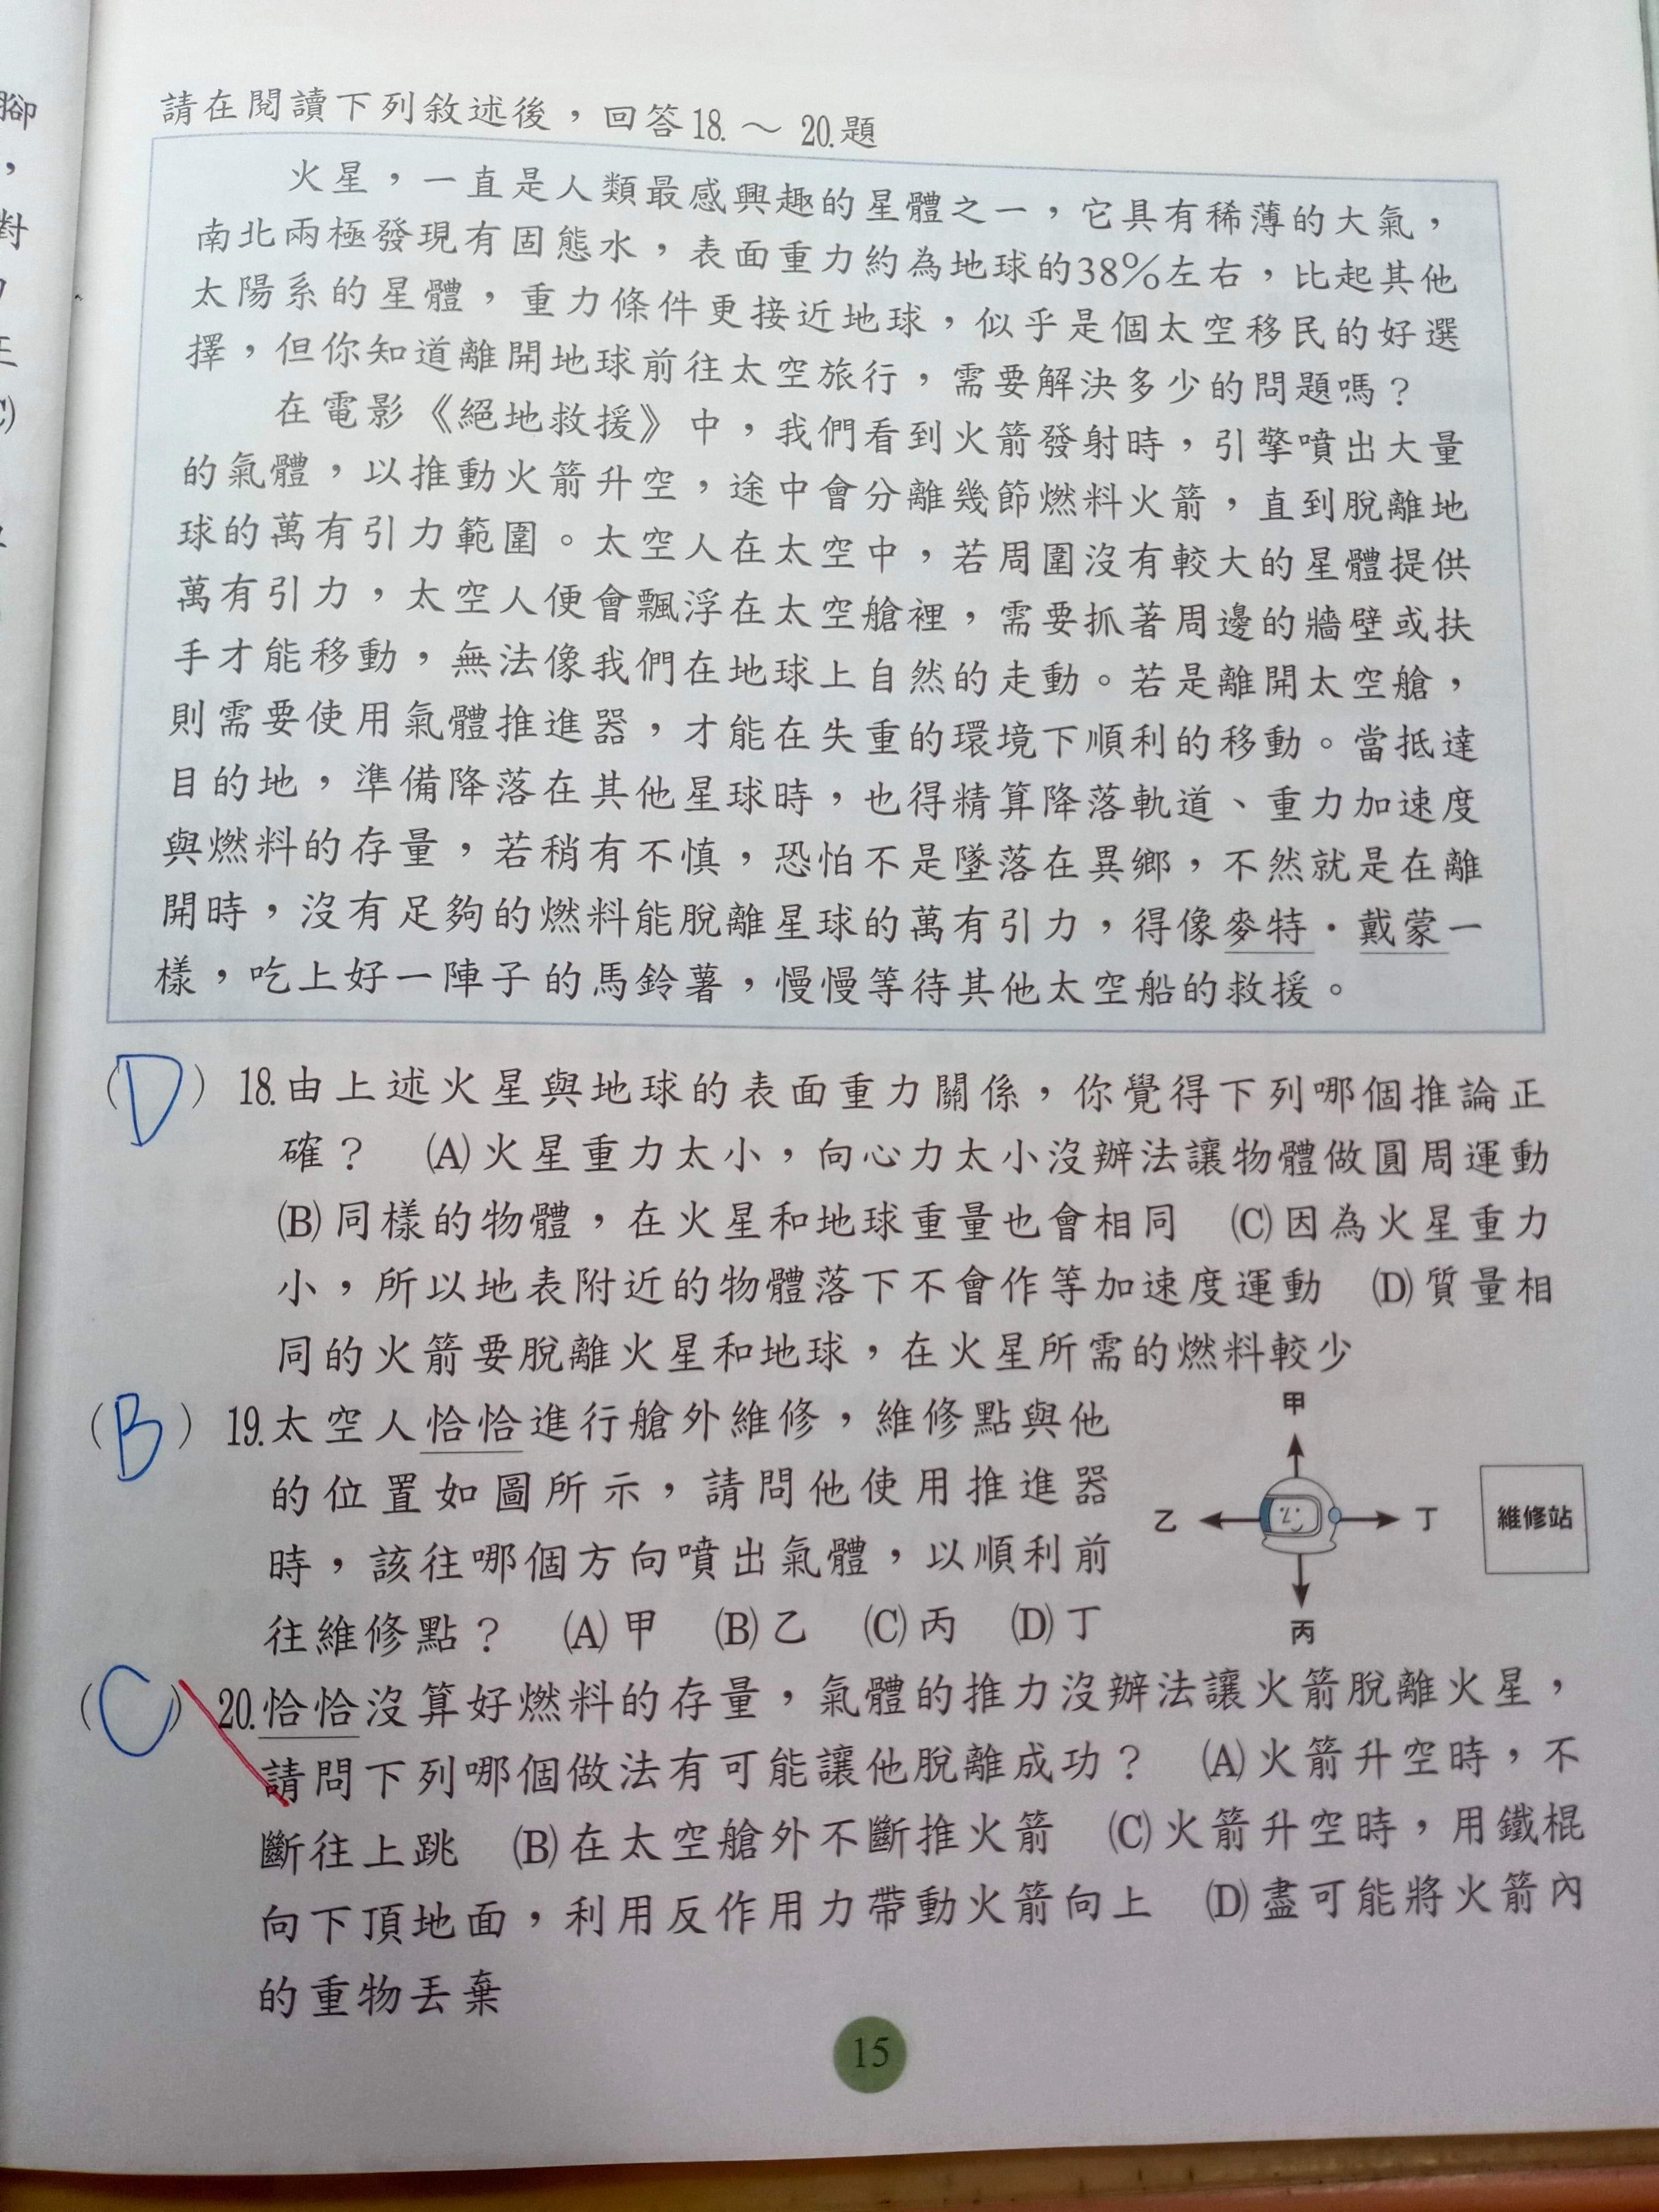 腳
，
對
請在閱讀下列敘述後，回答18.～20.題
火星，一直是人類最感興趣的星體之一，它具有稀薄的大氣，
南北兩極發現有固態水，表面重力約為地球的38%左右，比起其他
太陽系的星體，重力條件更接近地球，似乎是個太空移民的好選
擇，但你知道離開地球前往太空旅行，需要解決多少的問題嗎？
在電影《絕地救援》中，我們看到火箭發射時，引擎噴出大量
的氣體，以推動火箭升空，途中會分離幾節燃料火箭，直到脫離地
球的萬有引力範圍。太空人在太空中，若周圍沒有較大的星體提供
萬有引力，太空人便會飄浮在太空艙裡，需要抓著周邊的牆壁或扶
手才能移動，無法像我們在地球上自然的走動。若是離開太空艙，
則需要使用氣體推進器，才能在失重的環境下順利的移動。當抵達
目的地，準備降落在其他星球時，也得精算降落軌道、重力加速度
與燃料的存量，若稍有不慎，恐怕不是墜落在異鄉，不然就是在離
開時，沒有足夠的燃料能脫離星球的萬有引力，得像麥特．戴蒙一
樣，吃上好一陣子的馬鈴薯，慢慢等待其他太空船的救援。
(D) 18.由上述火星與地球的表面重力關係，你覺得下列哪個推論正
確？ (A)火星重力太小，向心力太小沒辦法讓物體做圓周運動
(B)同樣的物體，在火星和地球重量也會相同 (C)因為火星重力
小，所以地表附近的物體落下不會作等加速度運動 (D)質量相
同的火箭要脫離火星和地球，在火星所需的燃料較少
(B) 19.太空人恰恰進行艙外維修，維修點與他
的位置如圖所示，請問他使用推進器
時，該往哪個方向噴出氣體，以順利前
往維修點？ (A)甲 (B)乙 (C)丙 (D)丁
甲
乙
丁
維修站
丙
(C) 20.恰恰沒算好燃料的存量，氣體的推力沒辦法讓火箭脫離火星，
請問下列哪個做法有可能讓他脫離成功？ (A)火箭升空時，不
斷往上跳 (B)在太空艙外不斷推火箭 (C)火箭升空時，用鐵棍
向下頂地面，利用反作用力帶動火箭向上 (D)盡可能將火箭內
的重物丟棄
15